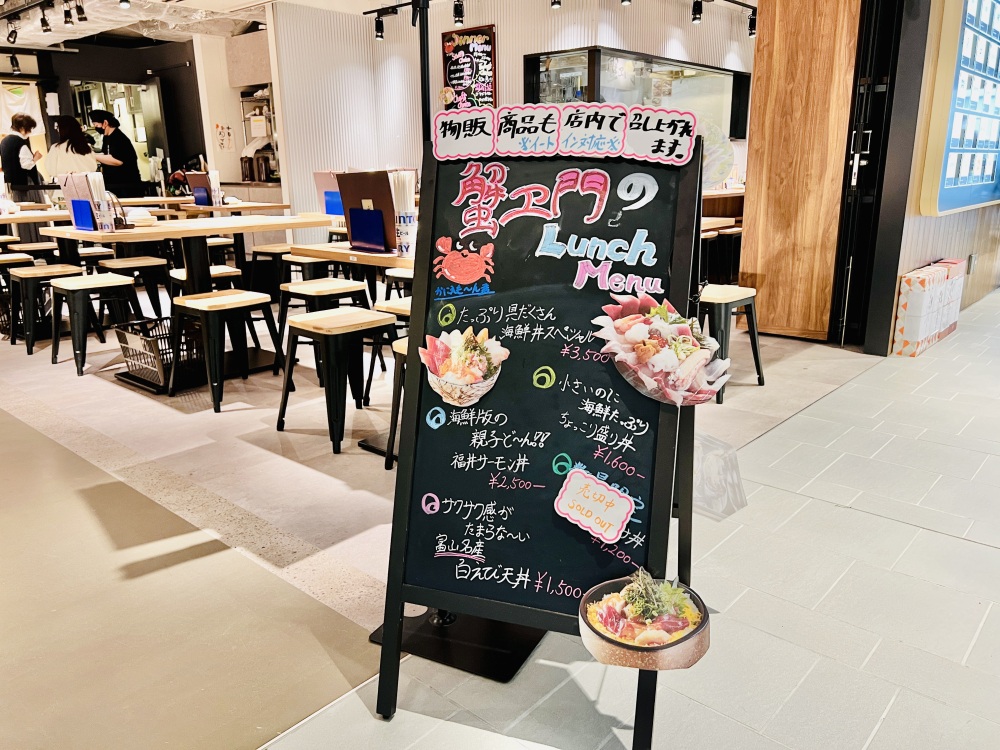 Dinner
Menu
物販 商品も 店内で 召し上がれ
ます。
イートイン対応
蟹ヱ門の
Lunch
Menu
たっぷり具だくさん
海鮮丼スペシャル
¥3,500
小さいのに
海鮮たっぷり
ちょっこり盛り丼
¥1,600-
海鮮版の
親子ど〜ん!!
福井サーモン丼
¥2,500-
売切中
SOLD OUT
丼
¥1,200-
サクサク感が
たまらな〜い
富山名産
白えび天丼 ¥1,500-